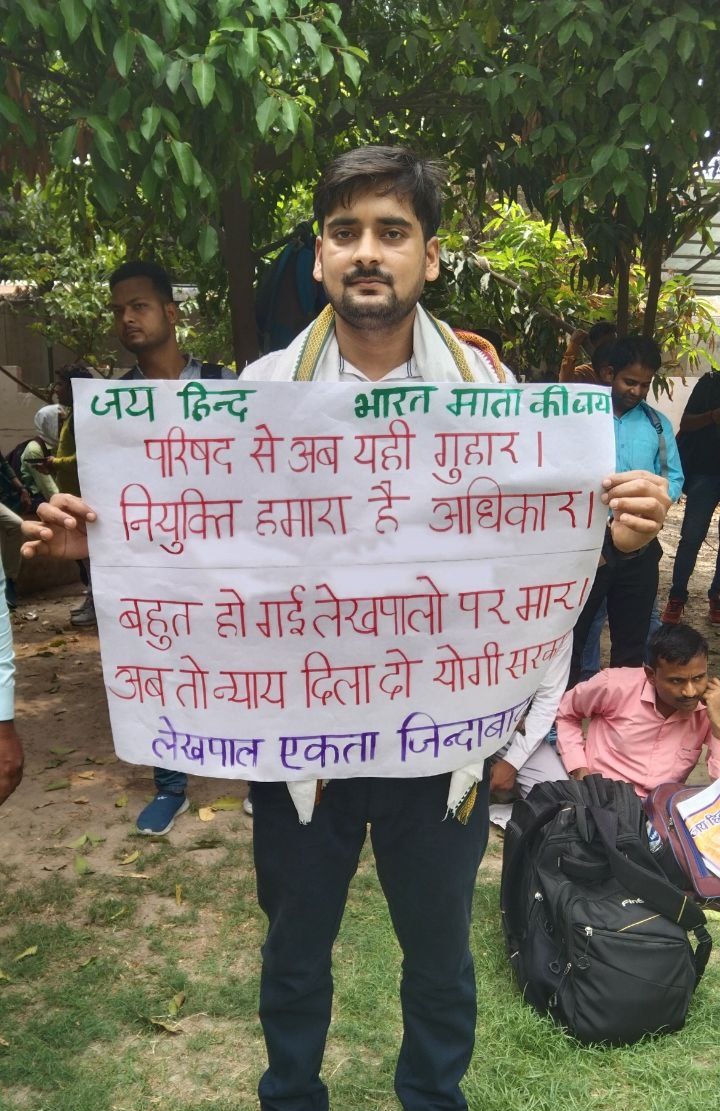 जय हिन्द भारत माता की जय
परिषद से अब यही गुहार।
नियुक्ति हमारा है अधिकार।
बहुत हो गई लेखपालो पर मार।
अब तो न्याय दिला दो योगी सरकार
लेखपाल एकता जिन्दाबाद